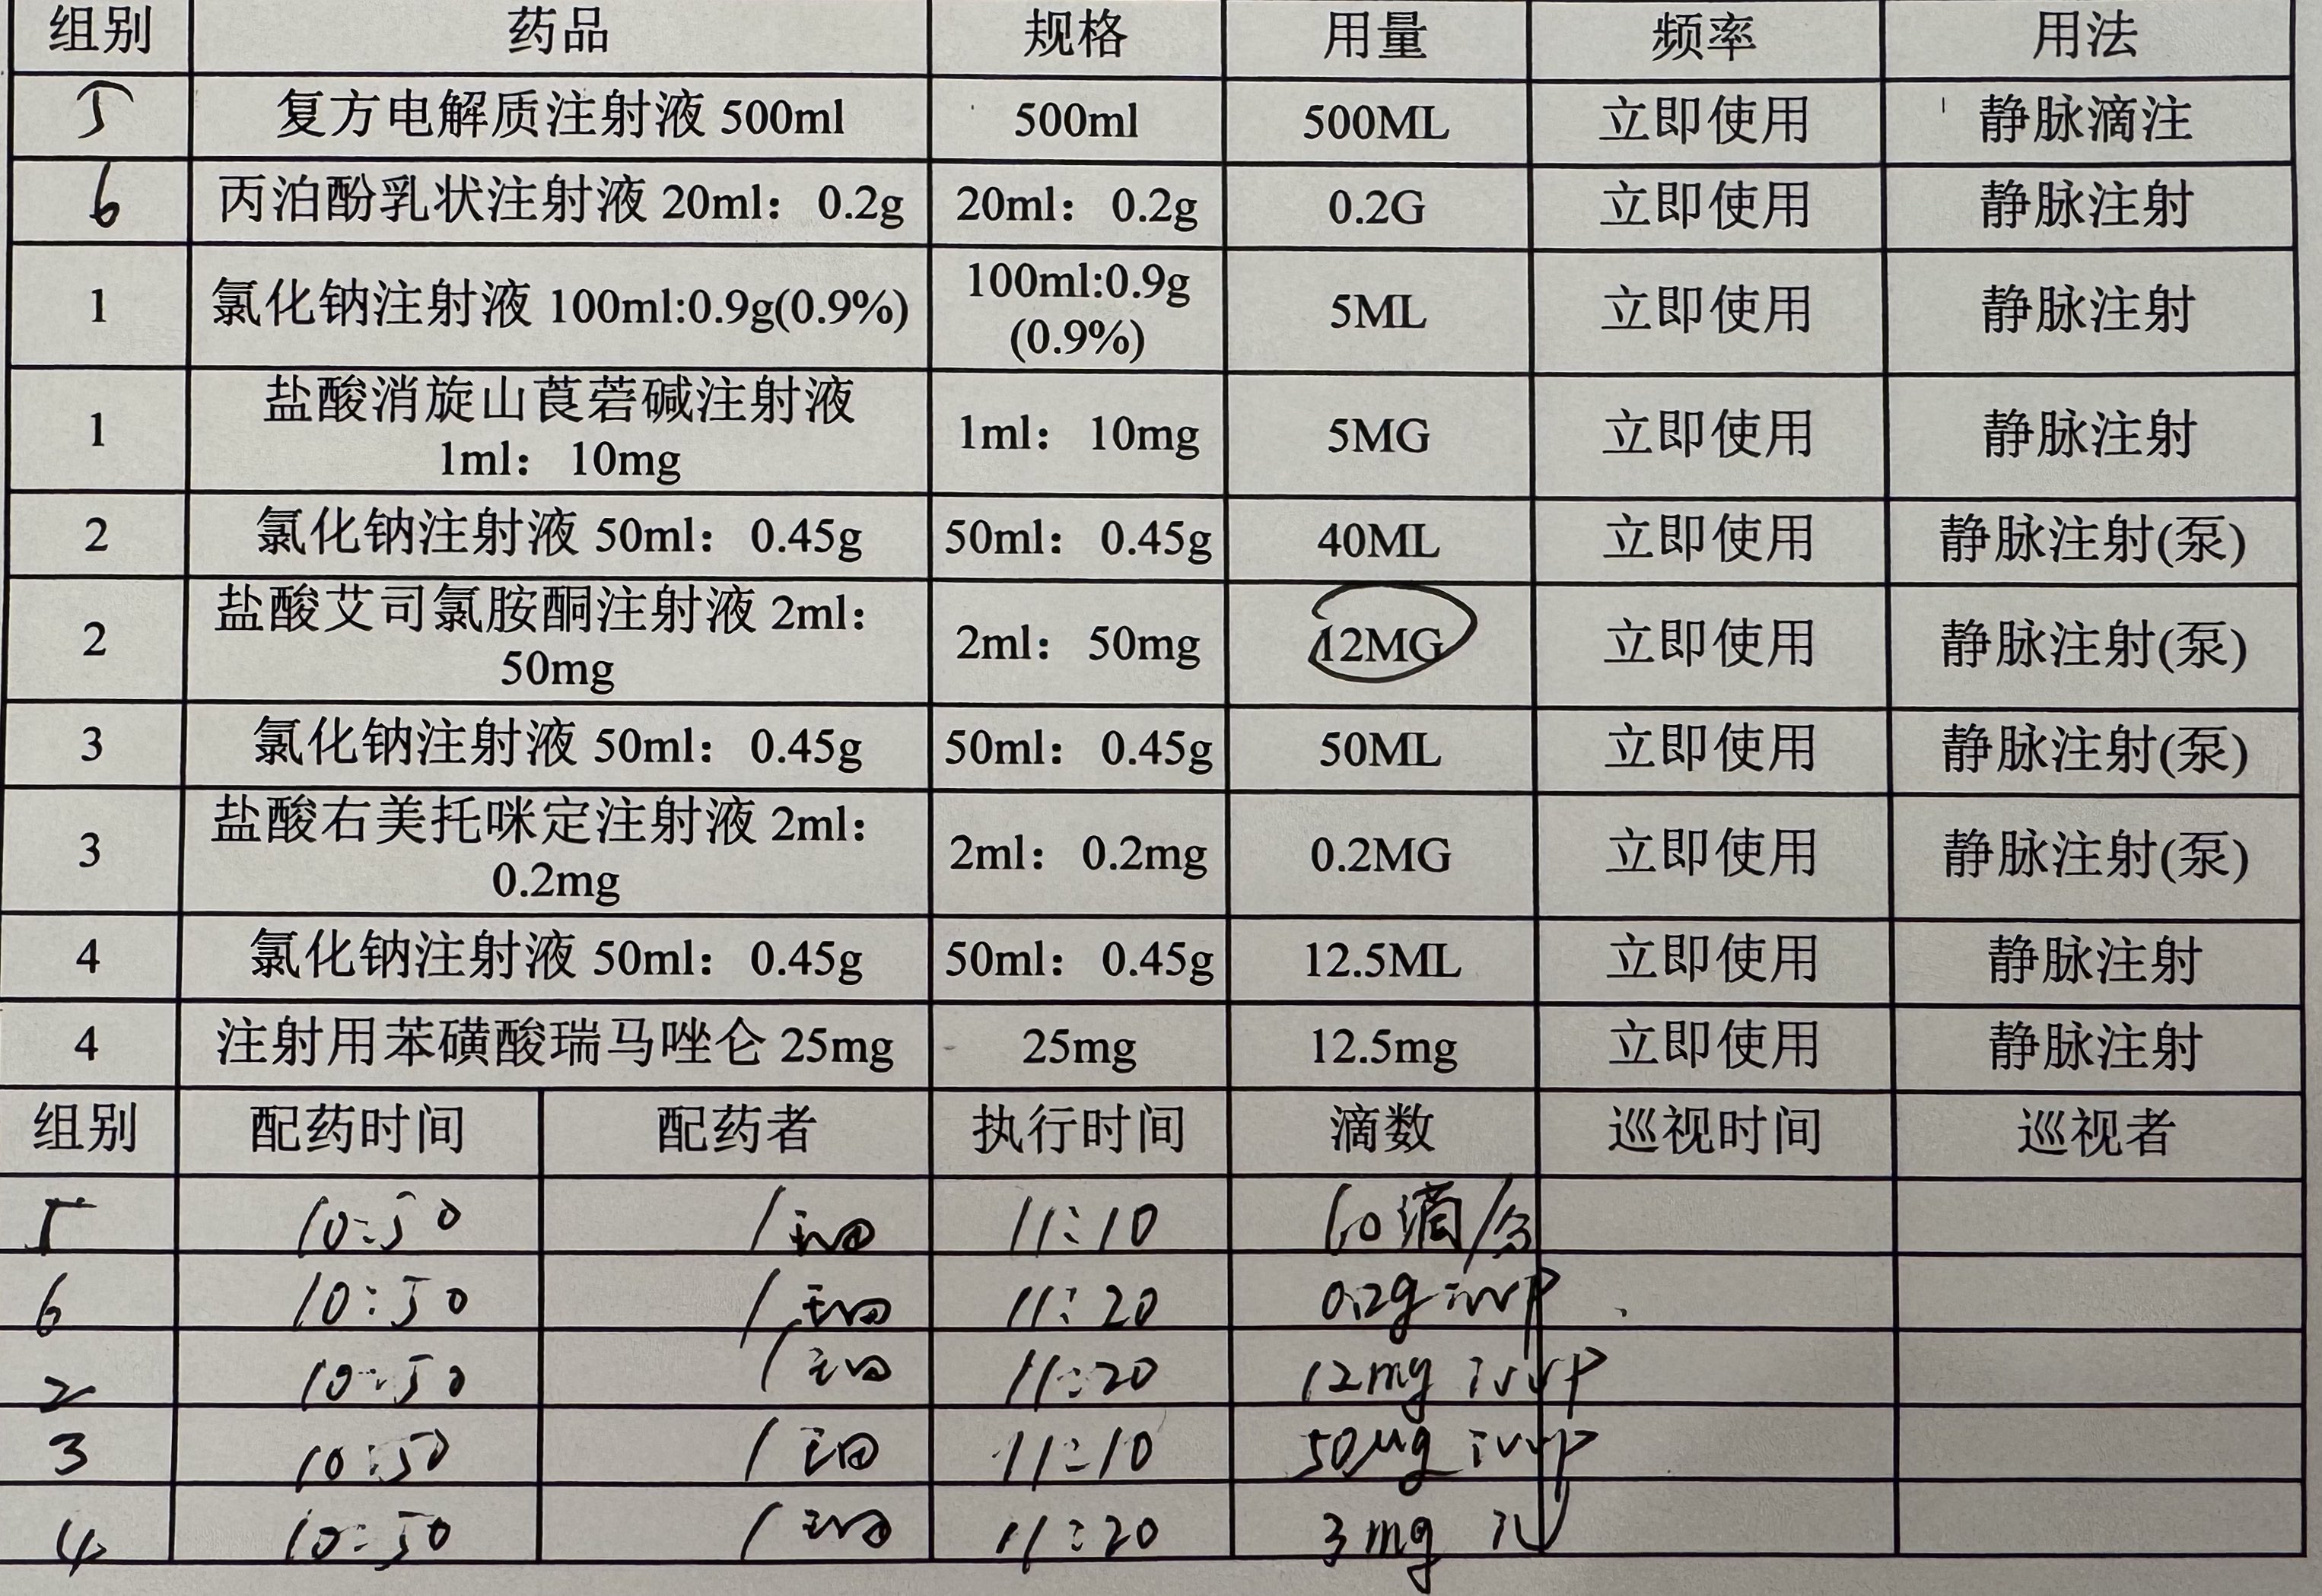 组别 药品 规格 用量 频率 用法
5 复方电解质注射液 500ml 500ml 500ML 立即使用 静脉滴注
6 丙泊酚乳状注射液 20ml： 0.2g 20ml： 0.2g 0.2G 立即使用 静脉注射
1 氯化钠注射液 100ml:0.9g(0.9%) 100ml:0.9g (0.9%) 5ML 立即使用 静脉注射
1 盐酸消旋山莨菪碱注射液 1ml： 10mg 1ml： 10mg 5MG 立即使用 静脉注射
2 氯化钠注射液 50ml： 0.45g 50ml： 0.45g 40ML 立即使用 静脉注射(泵)
2 盐酸艾司氯胺酮注射液 2ml： 50mg 2ml： 50mg 12MG 立即使用 静脉注射(泵)
3 氯化钠注射液 50ml： 0.45g 50ml： 0.45g 50ML 立即使用 静脉注射(泵)
3 盐酸右美托咪定注射液 2ml： 0.2mg 2ml： 0.2mg 0.2MG 立即使用 静脉注射(泵)
4 氯化钠注射液 50ml： 0.45g 50ml： 0.45g 12.5ML 立即使用 静脉注射
4 注射用苯磺酸瑞马唑仑 25mg 25mg 12.5mg 立即使用 静脉注射
组别 配药时间 配药者 执行时间 滴数 巡视时间 巡视者
5 10:50 11:10 60滴/分
6 10:50 11:20 0.2g ivvP
2 10:50 11:20 12mg ivvP
3 10:50 11:10 50μg ivvP
4 10:50 11:20 3mg iv